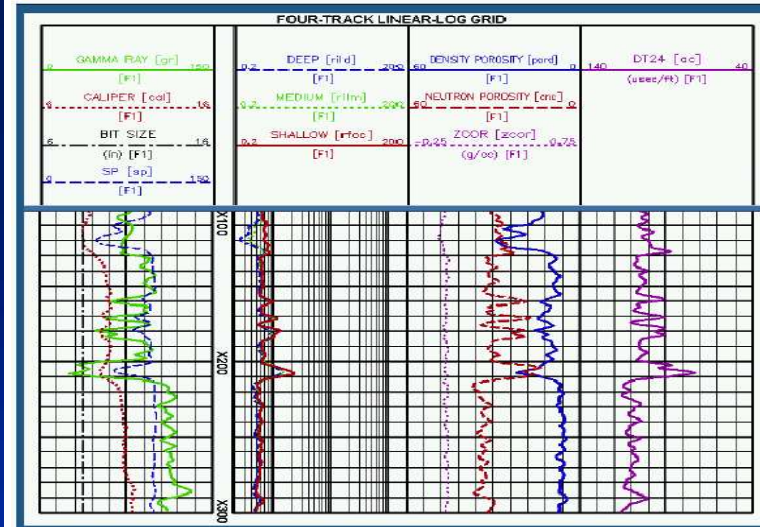 FOUR-TRACK LINEAR-LOG GRID
0 GAMMA RAY [gr] 150
[F1]
6 CALIPER [cal] 16
[F1]
6 BIT SIZE 16
(in) [F1]
0 SP [sp] 150
[F1]
0.2 DEEP [rild] 200
[F1]
0.2 MEDIUM [rilm] 200
[F1]
0.2 SHALLOW [rfoc] 200
[F1]
60 DENSITY POROSITY [pord] 0
[F1]
60 NEUTRON POROSITY [cnc] 0
[F1]
-0.25 ZCOR [zcor] 0.75
(g/cc) [F1]
140 DT24 [ac] 40
(usec/ft) [F1]
X100
X200
X300